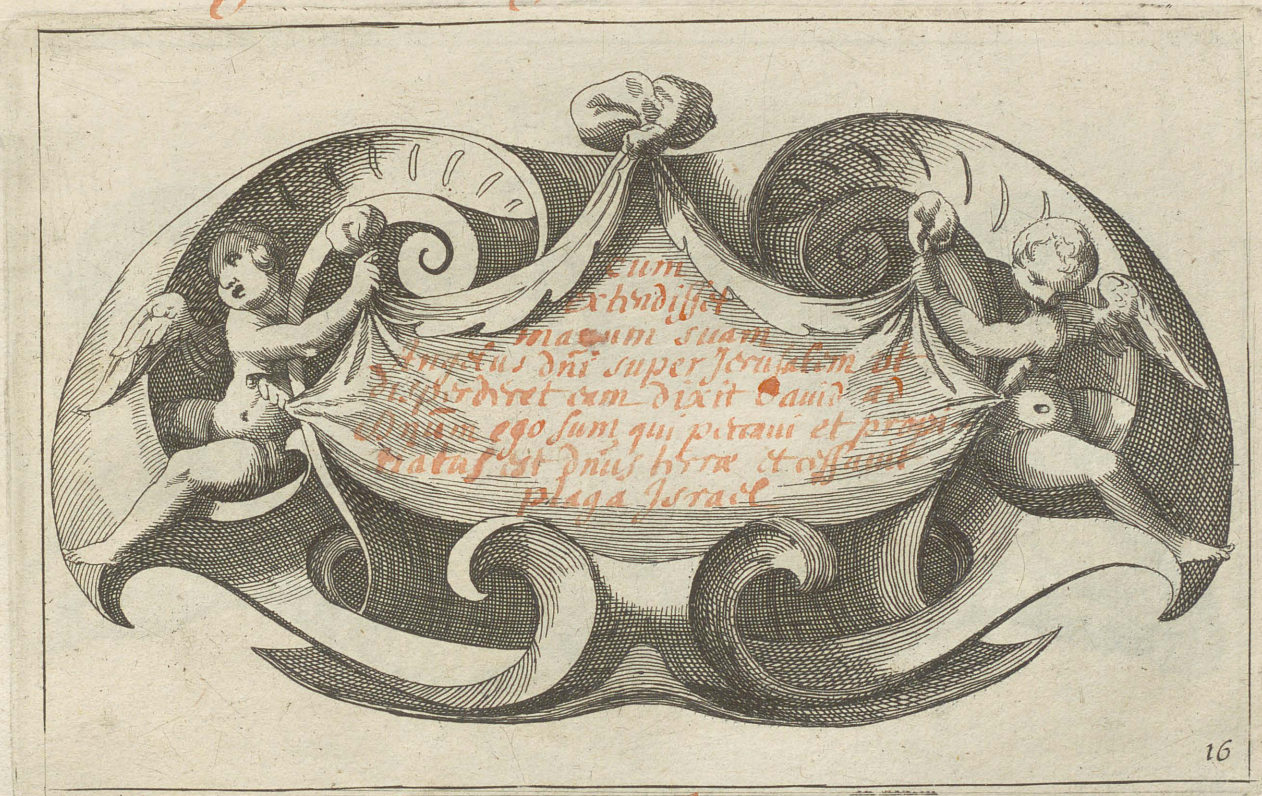 cum
extendisset
manum suam
Angelus dñi super Jerusalem ut
disperderet eam dixit David ad
Dñum ego sum qui peccaui et propi
tiatus est dñus terræ et cessauit
plaga Israel
16